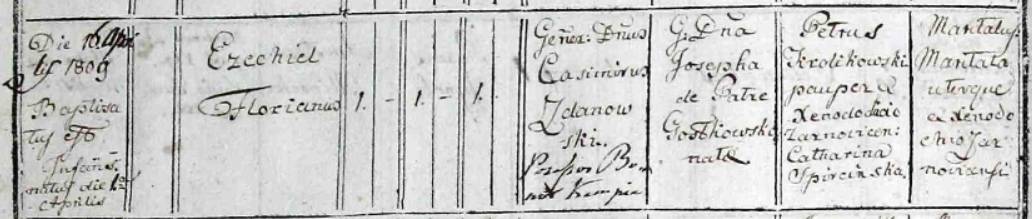 Die 16 Apri
lis 1809
Baptisa
tus est
Infans
natus die 1
Aprilis
Ezechiel
Florianus
1. - 1. - 1.
Gener: Dnus
Casimirus
Zdanow
ski.
Possor Bo
G. Dna
Josepha
de Patre
Gostkowska
nata
Petrus
Krolikowski
pauper
Xenodochio
Zarnovicen:
Catharina
Spircinska.
Mantatus
Mantata
uterque
a Xenodo
chio Zar
noviensi